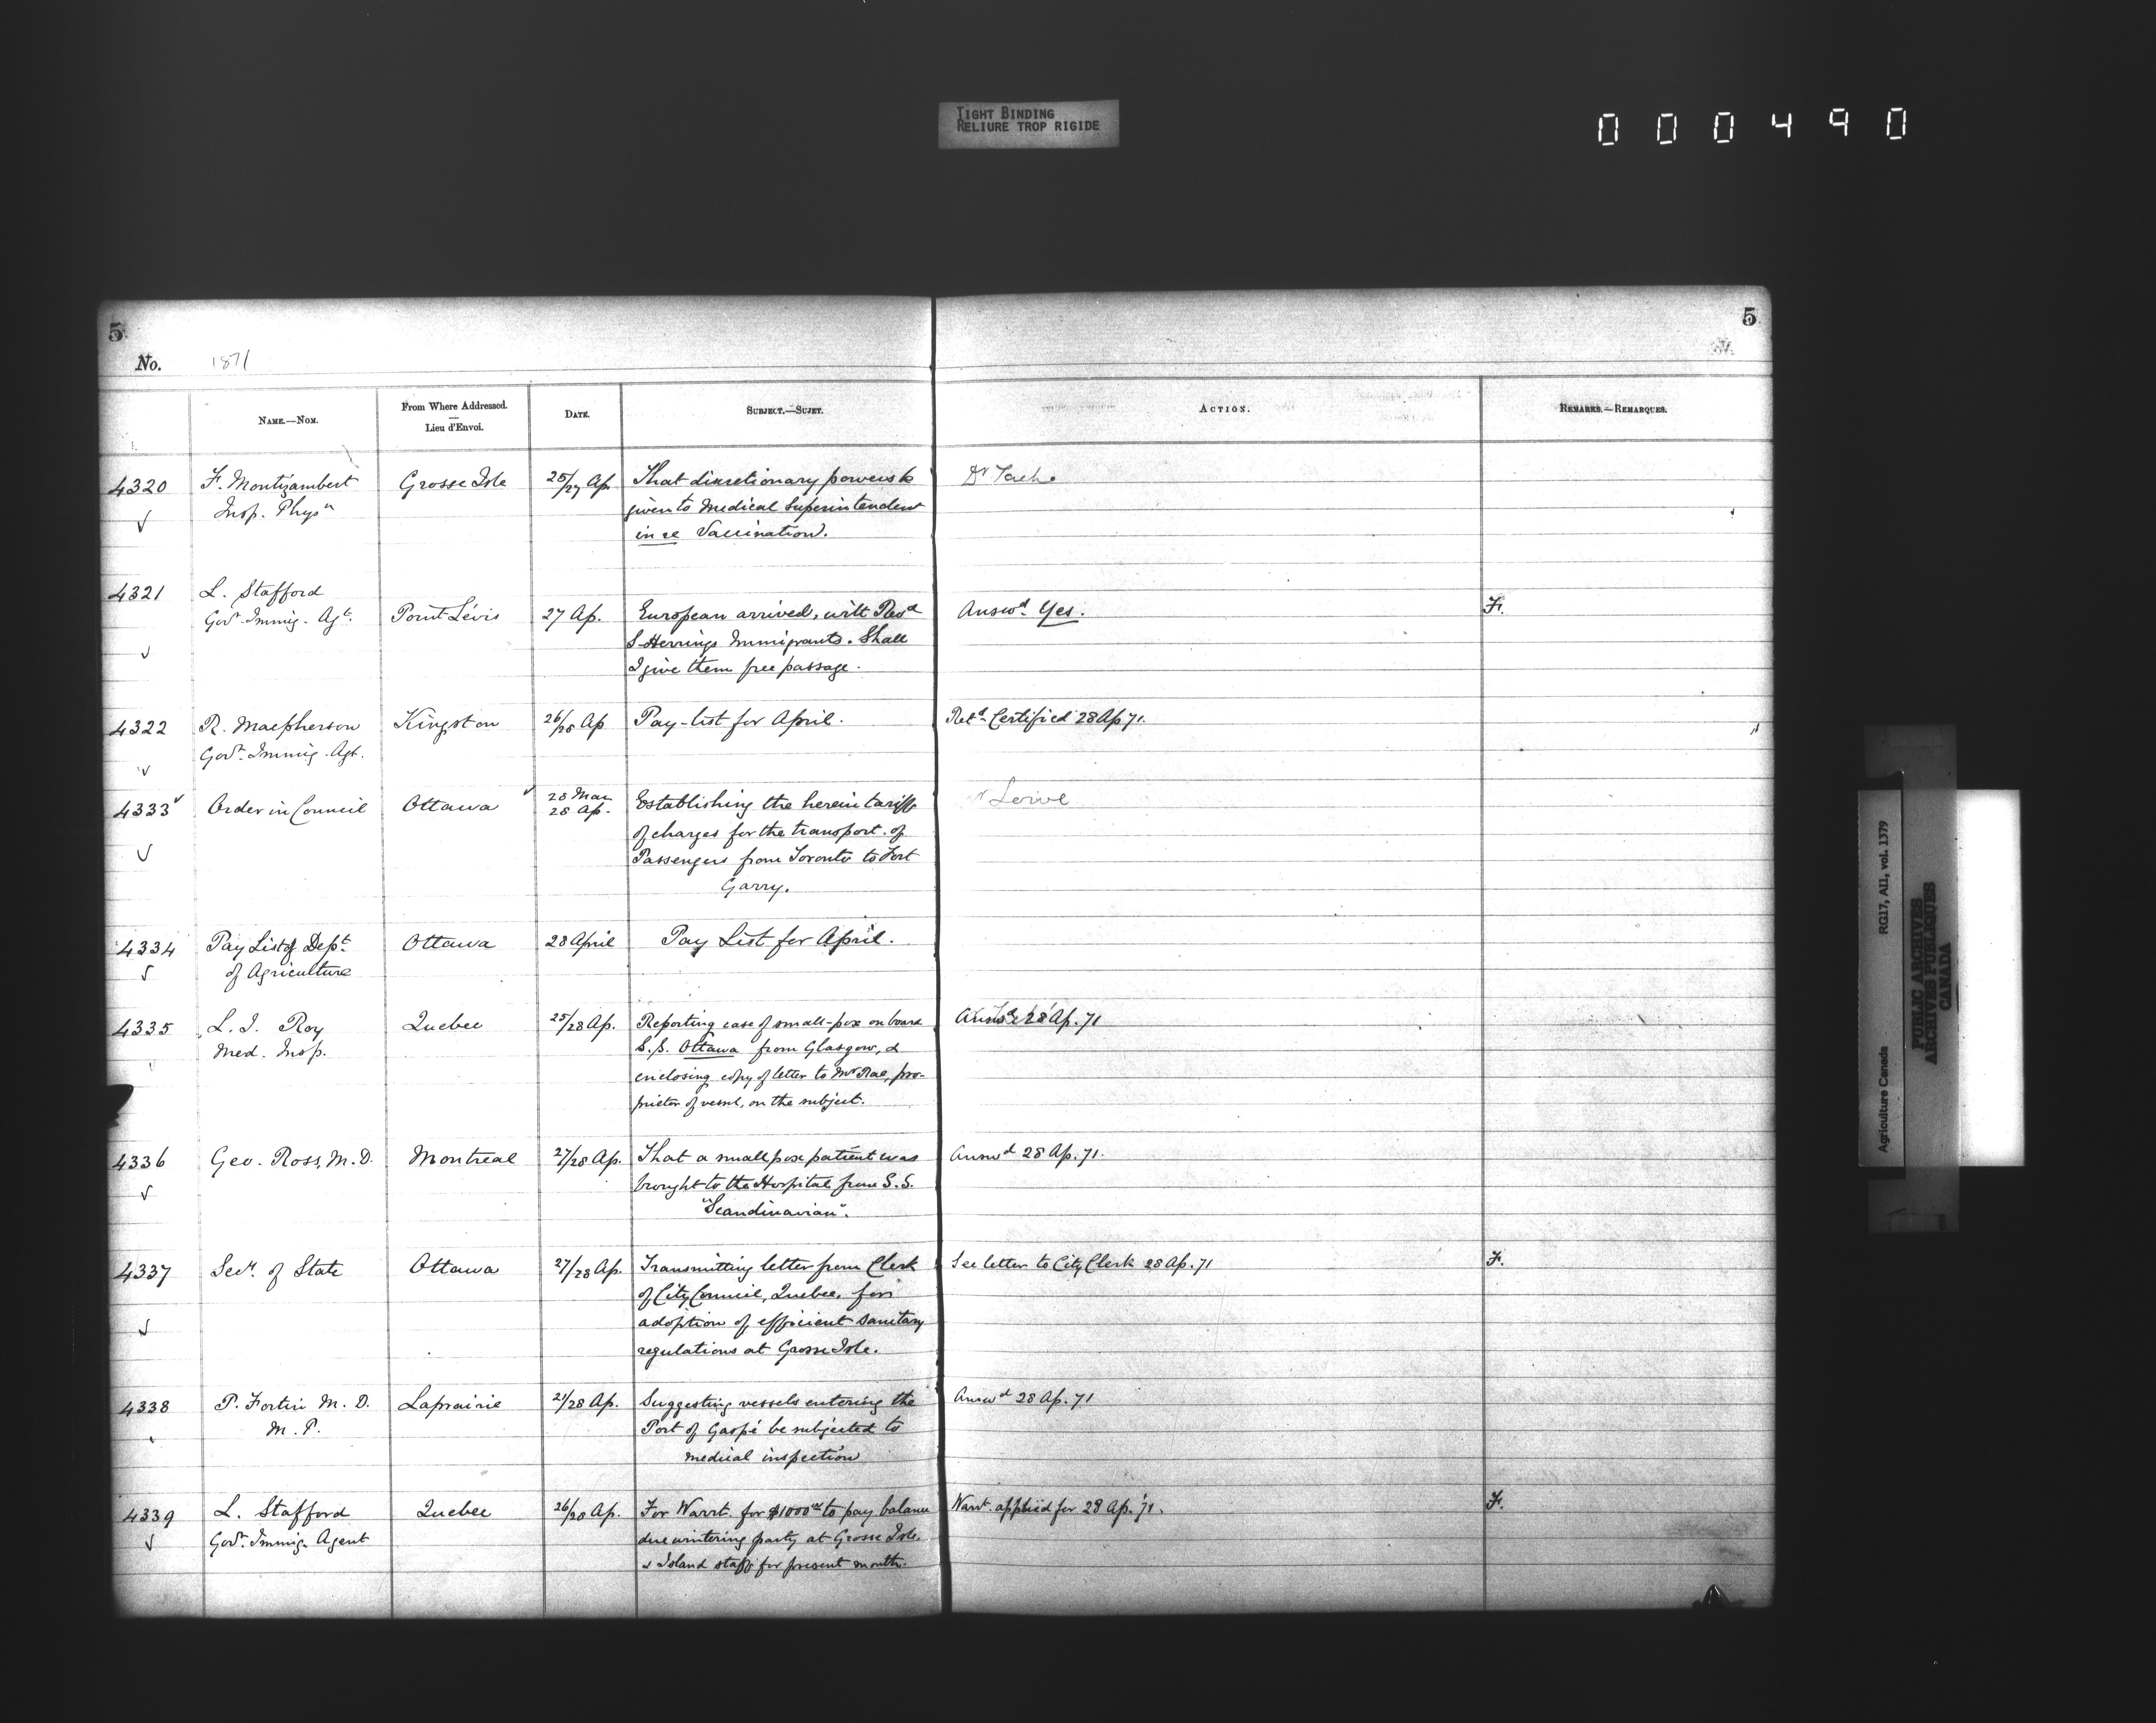 TIGHT BINDING
RELIURE TROP RIGIDE
000490
5 5
No. 1871
NAME.—NOM. From Where Addressed. — Lieu d'Envoi. DATE. SUBJECT.—SUJET. ACTION. REMARKS.—REMARQUES.
4320 F. Montizambert Grosse Isle 25/27 Ap. That discretionary powers be Dr Tache
Insp. Physn given to Medical Superintendent
in re Vaccination.
4321 L. Stafford
Govt. Immig. Agt. Point Lévis 27 Ap. European arrived, with Revd Answd. Yes. F.
S Herrings Immigrants. Shall
I give them free passage.
4322 R. Macpherson Kingston 26/28 Ap Pay-list for April. Retd. Certified 28 Ap 71.
Govt. Immig. Agt.
4333 Order in Council Ottawa 28 Mar Establishing the herein tariff Lowe
28 Ap. of charges for the transport of
Passengers from Toronto to Fort
Garry.
4334 Pay List of Dept. Ottawa 28 April Pay List for April.
of Agriculture
4335 L. I. Roy Quebec 25/28 Ap. Reporting case of small-pox on board Answd 28 Ap. 71
Med. Insp. S.S. Ottawa from Glasgow, &
enclosing copy of letter to Mr Rae, pro-
prietor of vessel, on the subject.
4336 Geo. Ross, M.D. Montreal 27/28 Ap. That a small pox patient was Answd 28 Ap. 71.
brought to the Hospital from S.S.
"Scandinavian".
4337 Secy. of State Ottawa 27/28 Ap. Transmitting letter from Clerk See letter to City Clerk 28 Ap. 71 F.
of City Council, Quebec, for
adoption of efficient sanitary
regulations at Grosse Isle.
4338 P. Fortin M.D. Laprairie 21/28 Ap. Suggesting vessels entering the Answd 28 Ap. 71
M.P. Port of Gaspé be subjected to
medical inspection
4339 L. Stafford Quebec 26/28 Ap. For Warrt. for $1000 to pay balance Warrt. applied for 28 Ap. '71. F.
Govt. Immig. Agent due wintering party at Grosse Isle,
& Island staff for present month.
Agriculture Canada RG17, AII, vol. 1379
PUBLIC ARCHIVES
ARCHIVES PUBLIQUES
CANADA